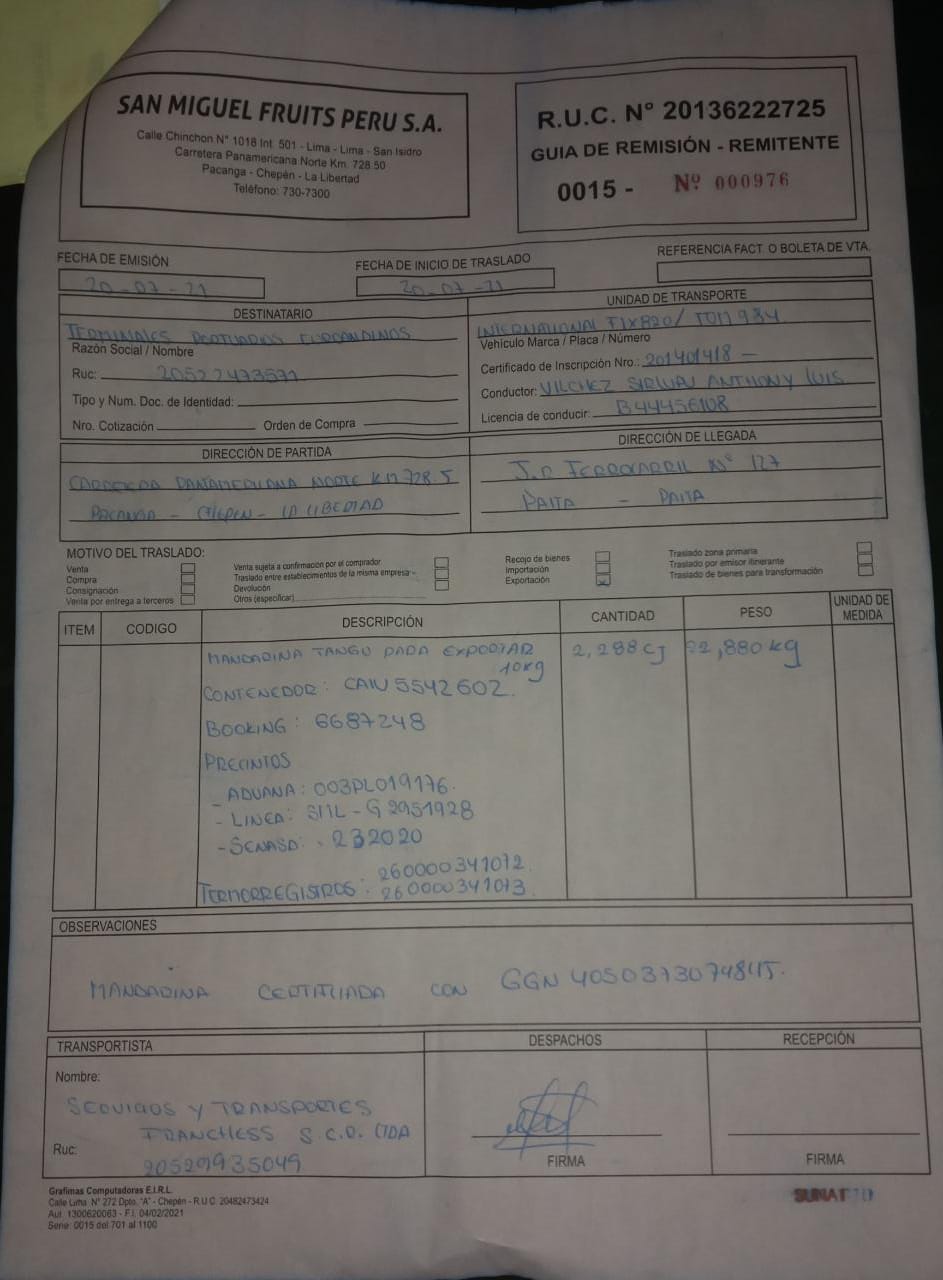 SAN MIGUEL FRUITS PERU S.A.
Calle Chinchon N° 1018 Int. 501 - Lima - Lima - San Isidro
Carretera Panamericana Norte Km. 728.50
Pacanga - Chepén - La Libertad
Teléfono: 730-7300
R.U.C. N° 20136222725
GUIA DE REMISIÓN - REMITENTE
0015 - Nº 000976
FECHA DE EMISIÓN
20-07-21
FECHA DE INICIO DE TRASLADO
20-07-21
REFERENCIA FACT. O BOLETA DE VTA.
DESTINATARIO
TERMINALES PORTUARIOS EUROANDINOS
Razón Social / Nombre
Ruc: 20522473571
Tipo y Num. Doc. de Identidad:
Nro. Cotización Orden de Compra
UNIDAD DE TRANSPORTE
INTERNATIONAL T1X820/
Vehículo Marca / Placa / Número
Certificado de Inscripción Nro.: 201401418 -
Conductor: VILCHEZ ANTHONY LUIS
Licencia de conducir: B44456108
DIRECCIÓN DE PARTIDA
CARRETERA PANAMERICANA NORTE KM 728.5
PACANGA - CHEPEN - LA LIBERTAD
DIRECCIÓN DE LLEGADA
FERROCARRIL N° 127
PAITA - PAITA
MOTIVO DEL TRASLADO:
Venta
Compra
Consignación
Venta por entrega a terceros
Venta sujeta a confirmación por el comprador
Traslado entre establecimientos de la misma empresa
Devolución
Otros (especificar)
Recojo de bienes
Importación
Exportación
Traslado zona primaria
Traslado por emisor itinerante
Traslado de bienes para transformación
ITEM CODIGO DESCRIPCIÓN CANTIDAD PESO UNIDAD DE MEDIDA
MANDARINA TANGO PARA EXPORTAR 2,288 CJ 22,880 kg
10kg
CONTENEDOR: CAIU 5542602.
BOOKING: 6687248
PRECINTOS
- ADUANA: 003PL019176.
- LINEA: SML - G 2951928
- SENASA: 232020
260000341072.
TERMORREGISTROS: 260000341073.
OBSERVACIONES
MANDARINA CERTIFICADA CON GGN
TRANSPORTISTA
Nombre:
SERVICIOS Y TRANSPORTES
FRANCHESS S.C.R. LTDA
Ruc: 20529935049
DESPACHOS
FIRMA
RECEPCIÓN
FIRMA
Grafimas Computadoras E.I.R.L.
Calle Lima N° 272 Dpto. "A" - Chepén - R.U.C. 20482473424
Aut. 1300620063 - F.I. 04/02/2021
Serie: 0015 del 701 al 1100
SUNAT